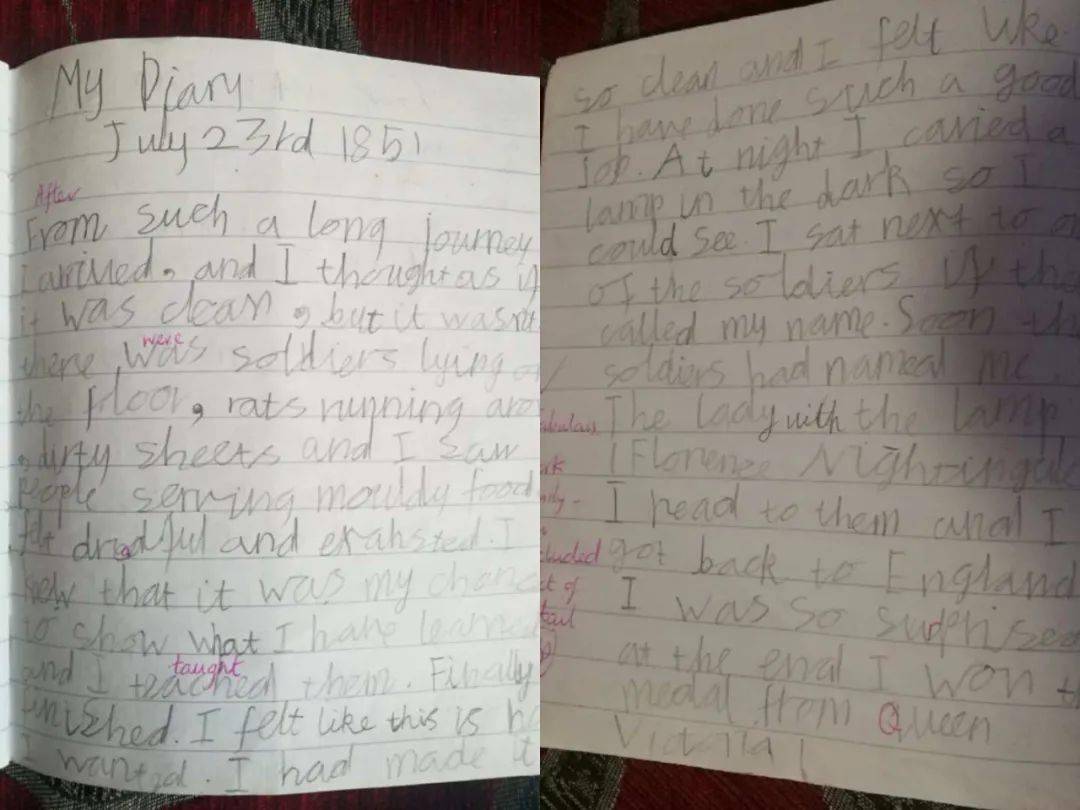 My Diary
July 23rd 1851
After
From such a long journey
I arrived, and I thought as if
it was clean, but it wasn't
were
there was soldiers lying on
the floor, rats running aro
, dirty sheets and I saw
People serving mouldy food
felt dreadful and exahsted. I
know that it was my chanc
to show what I have learned
taught
and I teached them. Finally
finished. I felt like this is ho
I wanted. I had made it
so clean and I felt like
I have done such a good
Job. At night I carried a
lamp in the dark so I
could see. I sat next to on
of the soldiers if the
called my name. Soon th
soldiers had named me
The lady with the lamp
(Florence Nightingale
I read to them and I
cluded got back to England
I was so suprised
at the end I won th
medal from Queen
Victoria!